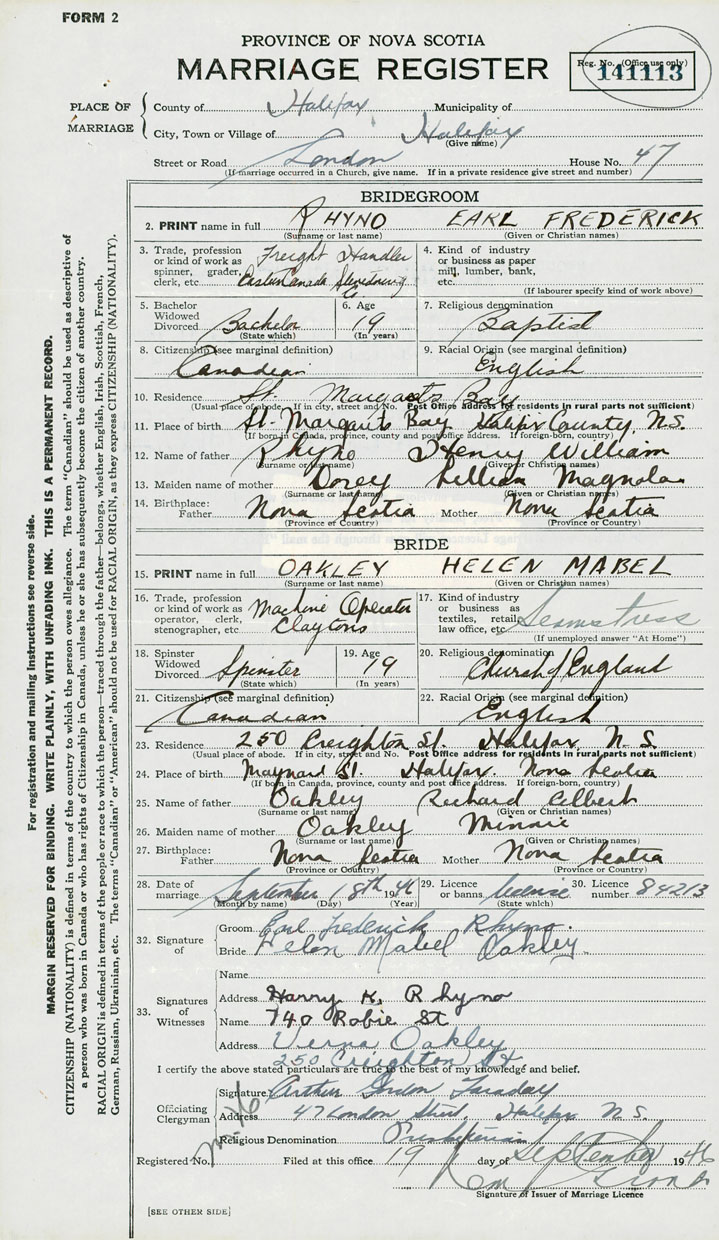 FORM 2
PROVINCE OF NOVA SCOTIA
MARRIAGE REGISTER
Reg. No. (Office use only)
141113
PLACE OF MARRIAGE
County of Halifax Municipality of
City, Town or Village of Halifax
(Give name)
Street or Road London House No. 47
(If marriage occurred in a Church, give name. If in a private residence give street and number)
BRIDEGROOM
2. PRINT name in full RHYNO EARL FREDERICK
(Surname or last name) (Given or Christian names)
3. Trade, profession or kind of work as spinner, grader, clerk, etc. Freight Handler Eastern Canada Stevedoring Co
4. Kind of industry or business as paper mill, lumber, bank, etc.
(If labourer specify kind of work above)
5. Bachelor Widowed Divorced Bachelor
(State which)
6. Age 19
(In years)
7. Religious denomination
Baptist
8. Citizenship (see marginal definition)
Canadian
9. Racial Origin (see marginal definition)
English
10. Residence St. Margarets Bay
(Usual place of abode. If in city, street and No. Post Office address for residents in rural parts not sufficient)
11. Place of birth St. Margarets Bay Halifax County, N.S.
(If born in Canada, province, county and post office address. If foreign-born, country)
12. Name of father Rhyno Henry William
(Surname or last name) (Given or Christian names)
13. Maiden name of mother Dorey Lillian Magnola
(Surname or last name) (Given or Christian names)
14. Birthplace: Father Nova Scotia Mother Nova Scotia
(Province of Country) (Province or Country)
BRIDE
15. PRINT name in full OAKLEY HELEN MABEL
(Surname or last name) (Given or Christian names)
16. Trade, profession or kind of work as operator, clerk, stenographer, etc. Machine Operator Claytons
17. Kind of industry or business as textiles, retail, law office, etc. Seamstress
(If unemployed answer "At Home")
18. Spinster Widowed Divorced Spinster
(State which)
19. Age 19
(In years)
20. Religious denomination
Church of England
21. Citizenship (see marginal definition)
Canadian
22. Racial Origin (see marginal definition)
English
23. Residence 250 Creighton St. Halifax N.S.
(Usual place of abode. If in city, street and No. Post Office address for residents in rural parts not sufficient)
24. Place of birth Maynard St. Halifax. Nova Scotia
(If born in Canada, province, county and post office address. If foreign-born, country)
25. Name of father Oakley Richard Albert
(Surname or last name) (Given or Christian names)
26. Maiden name of mother Oakley Minnie
(Surname or last name) (Given or Christian names)
27. Birthplace: Father Nova Scotia Mother Nova Scotia
(Province or Country) (Province or Country)
28. Date of marriage September 18th 1946
(Month by name) (Day) (Year)
29. Licence or banns license
(State which)
30. Licence number 84213
32. Signature of
Groom Earl Frederick Rhyno.
Bride Helen Mabel Oakley.
33. Signatures of Witnesses
Name
Address Harry K. Rhyno
Name 740 Robie St
Address Verna Oakley
250 Creighton St
I certify the above stated particulars are true to the best of my knowledge and belief.
Officiating Clergyman
Signature Arthur Gordon Faraday
Address 47 London Street, Halifax N.S.
Religious Denomination Presbyterian
Registered No. Filed at this office 19 day of September 1946
Signature of Issuer of Marriage Licence
[SEE OTHER SIDE]
For registration and mailing instructions see reverse side.
MARGIN RESERVED FOR BINDING. WRITE PLAINLY, WITH UNFADING INK. THIS IS A PERMANENT RECORD.
CITIZENSHIP (NATIONALITY) is defined in terms of the country to which the person owes allegiance. The term "Canadian" should be used as descriptive of
a person who was born in Canada or who has rights of Citizenship in Canada, unless he or she has subsequently become the citizen of another country.
RACIAL ORIGIN is defined in terms of the people or race to which the person—traced through the father—belongs, whether English, Irish, Scottish, French,
German, Russian, Ukrainian, etc. The terms "Canadian" or "American" should not be used for RACIAL ORIGIN, as they express CITIZENSHIP (NATIONALITY).